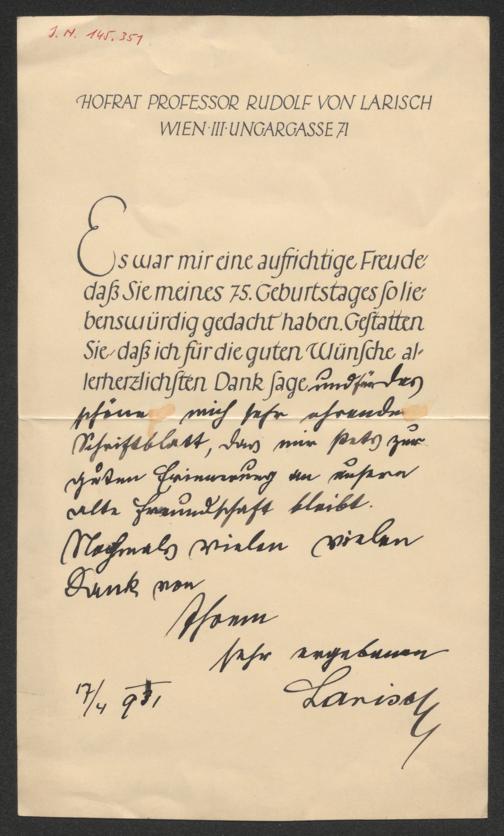 J. N. 145.351
HOFRAT PROFESSOR RUDOLF VON LARISCH
WIEN·III·UNGARGASSE 71
Es war mir eine aufrichtige Freude
daß Sie meines 75. Geburtstages so lie-
benswürdig gedacht haben. Gestatten
Sie, daß ich für die guten Wünsche al-
lerherzlichsten Dank sage und für das
schöne mich sehr ehrende
Schriftblatt, das mir stets zur
guten Erinnerung an unsere
alte Freundschaft bleibt.
Nochmals vielen vielen
Dank von
Ihrem
sehr ergebenen
17/4 931 Larisch